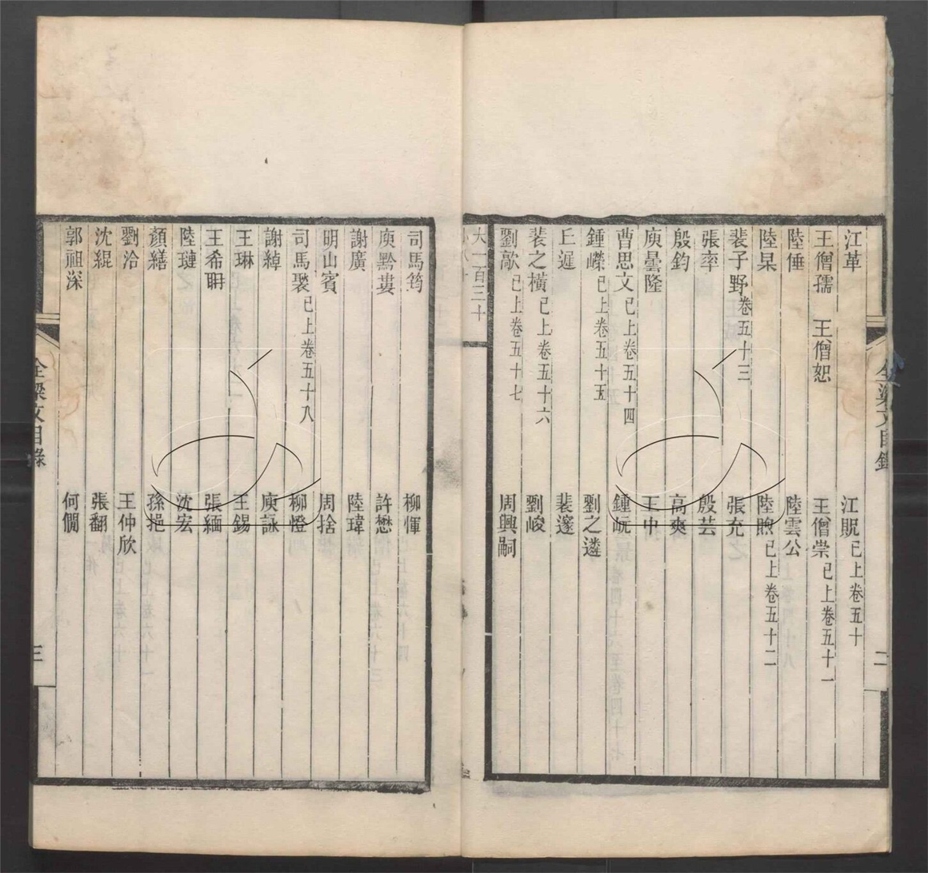 江革　江貺已上卷五十
王僧孺　王僧恕　王僧崇已上卷五十一
陸倕　陸雲公
陸杲　陸煦已上卷五十二
裴子野卷五十三　張充
張率　殷芸
殷鈞　高爽
庾曇隆　王中
曹思文已上卷五十四　鍾岏
鍾嶸已上卷五十五　劉之遴
丘遲　裴邃
裴之橫已上卷五十六　劉峻
劉歊已上卷五十七　周興嗣
大一百三十
全梁文目錄
二
司馬筠　柳惲
庾黔婁　許懋
謝廣　陸瑋
明山賓　周捨
司馬褧已上卷五十八　柳憕
謝綽　庾詠
王琳　王錫
王希聃　張緬
陸璉　沈宏
顏繕　孫挹
劉洽　王仲欣
沈緄　張翻
郭祖深　何僩
全梁文目錄
三